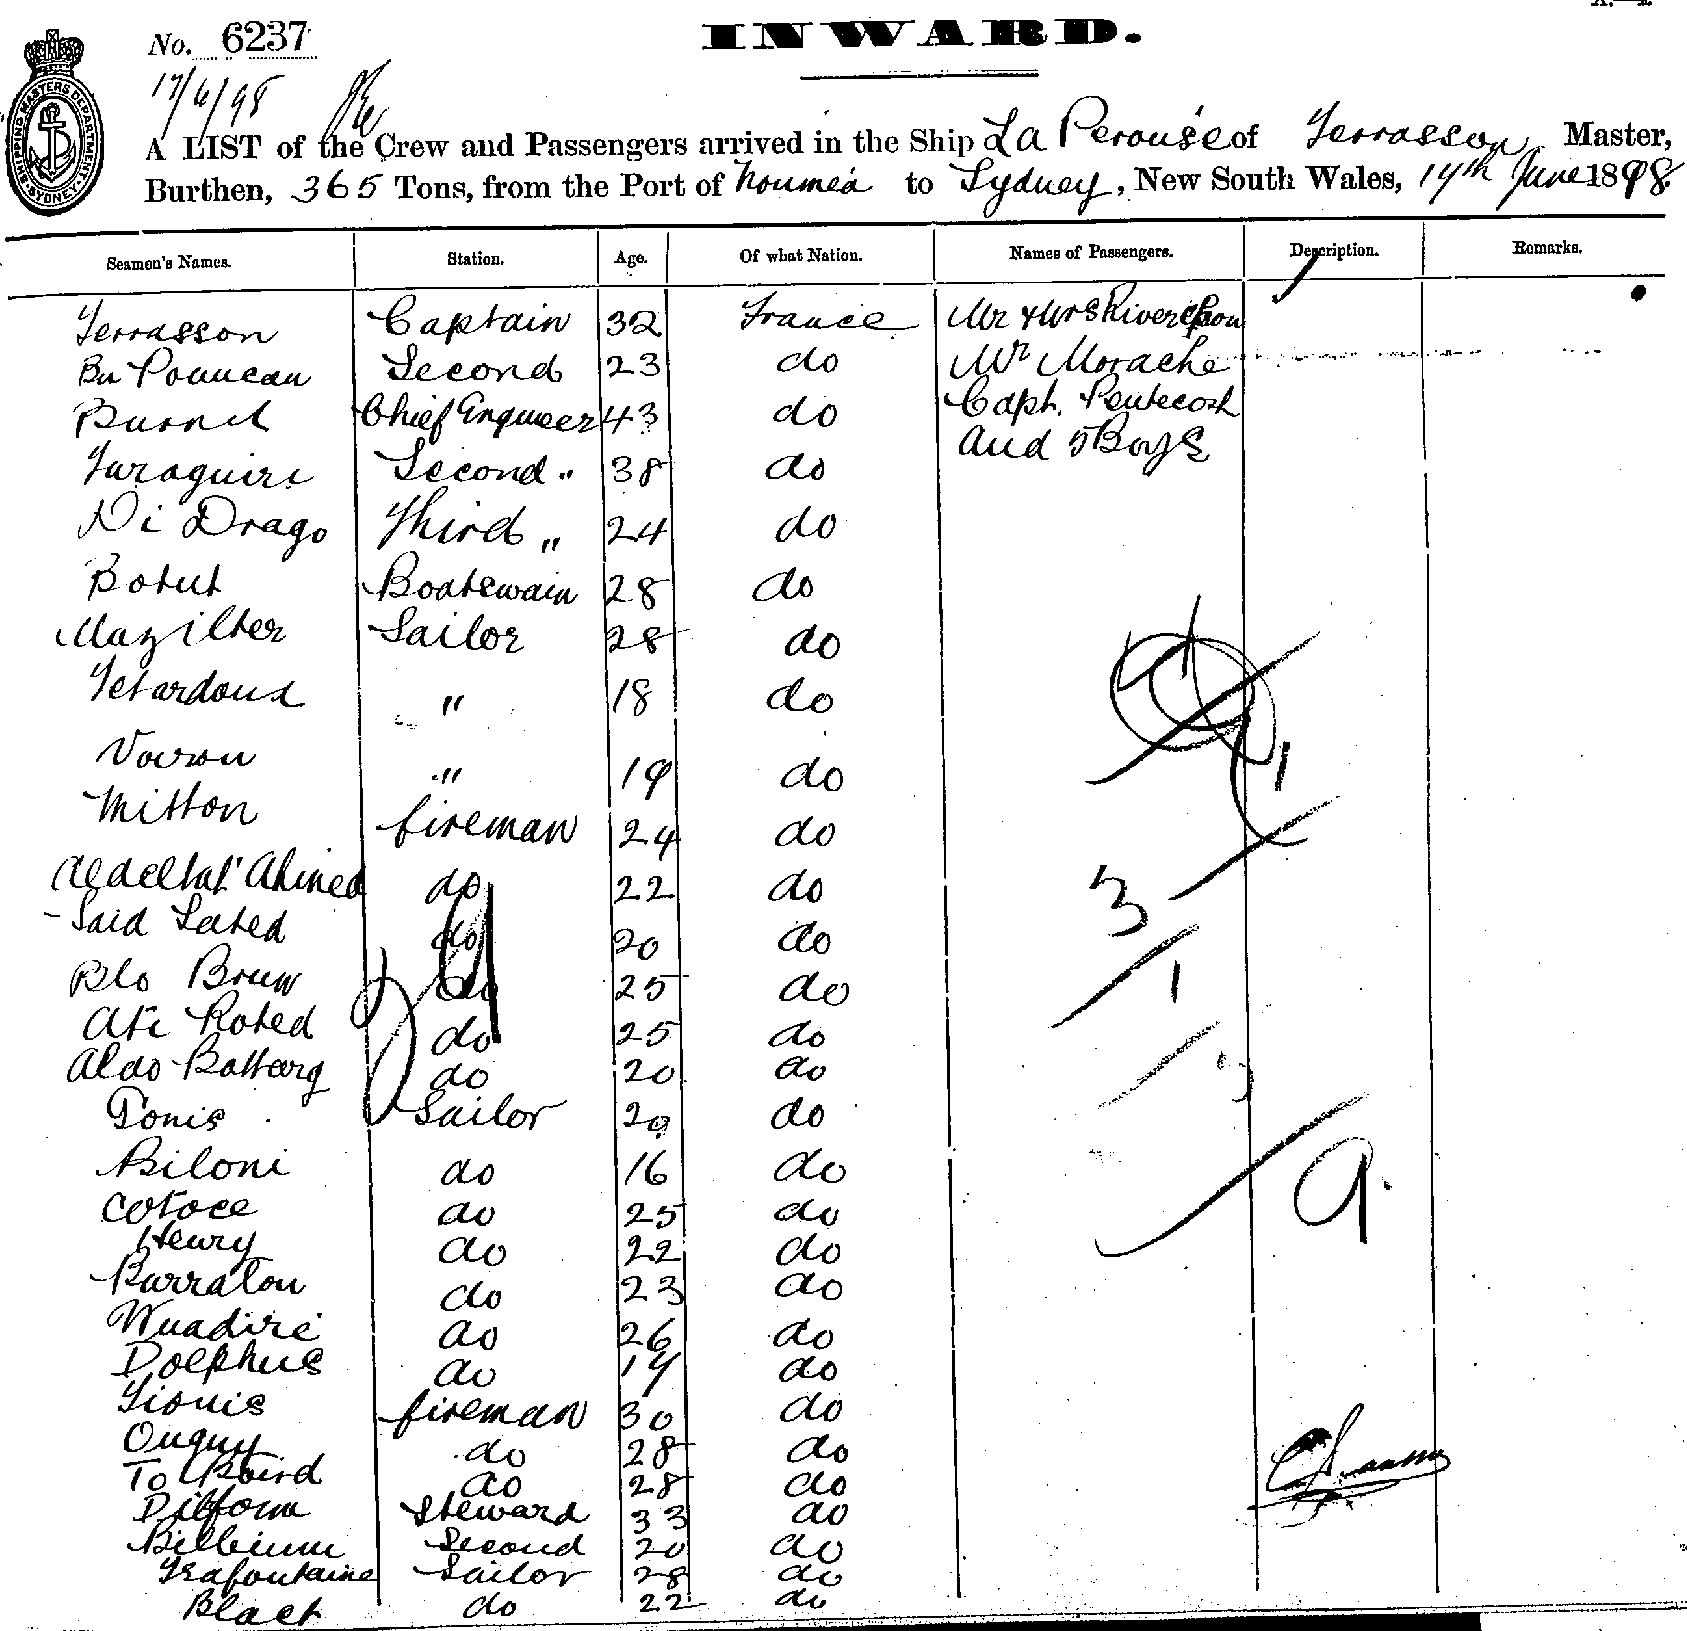 No. 6237
INWARD.
17/6/98
A LIST of the Crew and Passengers arrived in the Ship La Perouse of Terrasson Master,
Burthen, 365 Tons, from the Port of Nouméa to Sydney, New South Wales, 14th June 1898
Seamen's Names. Station. Age. Of what Nation. Names of Passengers. Description. Remarks.
Terrasson Captain 32 France Mr & Mrs
Second 23 do Mr Morache
Burnet Chief Engineer 43 do Capt. Pentecost
Second " 38 do and 5 Boys
Di Drago Third " 24 do
Botut Boatswain 28 do
Mazilter Sailor 28 do
" 18 do
" 19 do
Mitton fireman 24 do
Ahmed do 22 do
Said do 20 do
Blo Brun do 25 do
Ati Roted do 25 do
Aldo do 20 do
Tonis Sailor 20 do
Biloni do 16 do
Cotoce do 25 do
Henry do 22 do
Barralon do 23 do
Wuadiré do 26 do
Dolphus do 19 do
fireman 30 do
do 28 do
To Baird do 28 do
Steward 33 do
Second 20 do
Lafontaine Sailor 28 do
Black do 22 do
3
1
9